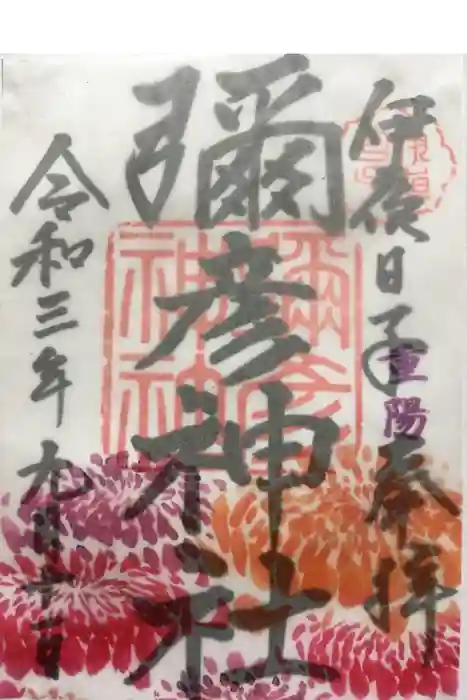 伊夜日子
重陽
奉拝
彌彦神社
彌彦神社
令和三年九月十一日